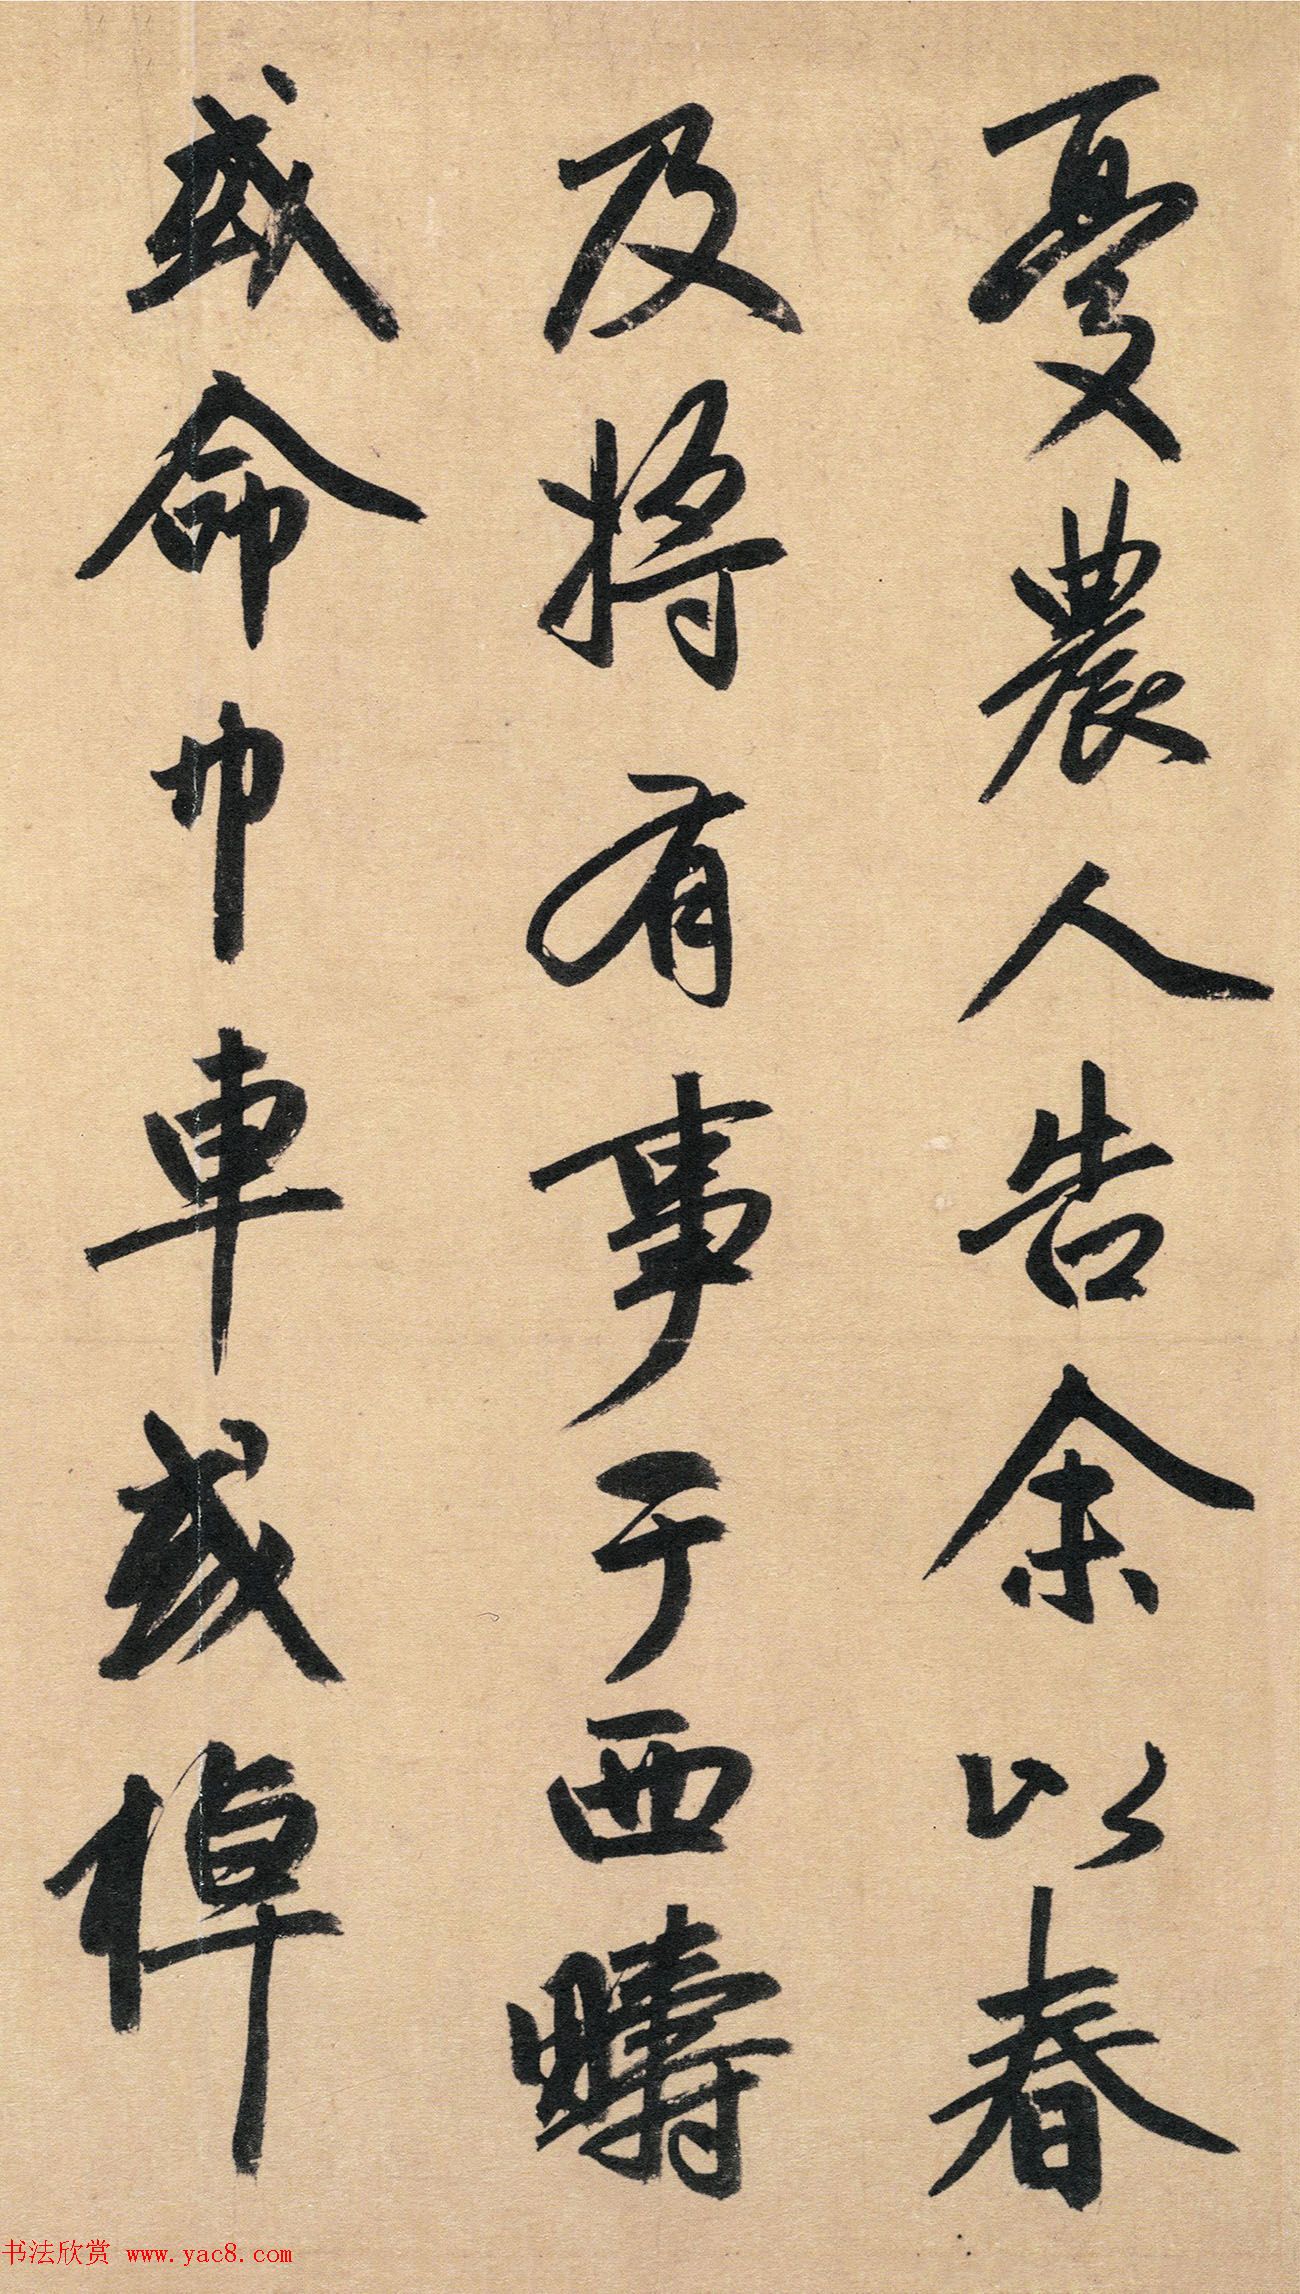 憂農人告余以春
及將有事于西疇
或命巾車或棹
书法欣赏 www.yac8.com